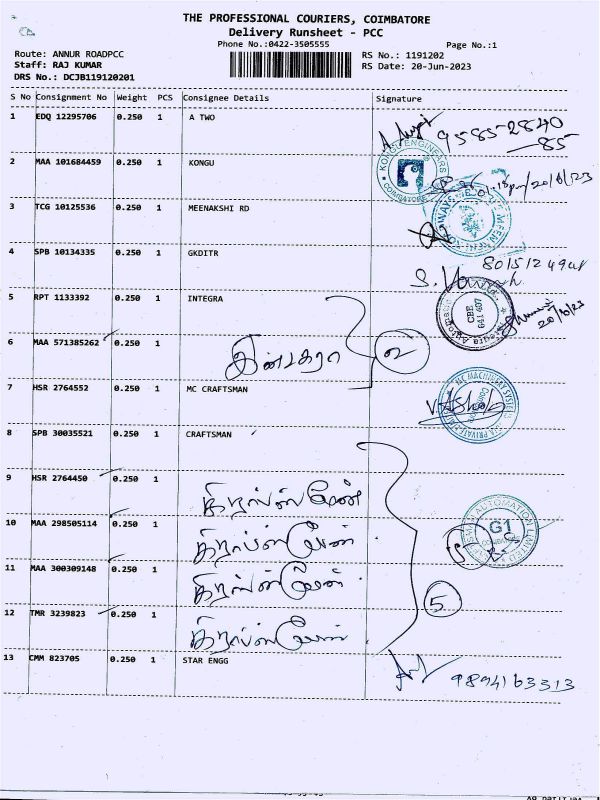 THE PROFESSIONAL COURIERS, COIMBATORE
Delivery Runsheet - PCC
Phone No.:0422-3505555
Page No.:1
Route: ANNUR ROADPCC
RS No.: 1191202
Staff: RAJ KUMAR
RS Date: 20-Jun-2023
DRS No.: DCJB119120201
S No Consignment No Weight PCS Consignee Details Signature
1 EDQ 12295706 0.250 1 A TWO
9585-2840
-85
2 MAA 101684459 0.250 1 KONGU
KONGU ENGINEERS
COIMBATORE
20/6/23
3 TCG 10125536 0.250 1 MEENAKSHI RD
4 SPB 10134335 0.250 1 GKDITR
5 RPT 1133392 0.250 1 INTEGRA
CBE
641 407
20/6/23
6 MAA 571385262 0.250 1
இன்டகரா
2
7 HSR 2764552 0.250 1 MC CRAFTSMAN
MC MACHINERY SYSTEMS
V.Ashok
8 SPB 30035521 0.250 1 CRAFTSMAN
9 HSR 2764450 0.250 1
கிராப்ஸ்மேன்
AUTOMATION LIMITED
G1
10 MAA 298505114 0.250 1
கிராப்ஸ்மேன்
11 MAA 300309148 0.250 1
கிராப்ஸ்மேன்
5
12 TMR 3239823 0.250 1
கிராப்ஸ்மேன்
13 CMM 823705 0.250 1 STAR ENGG
9894163313